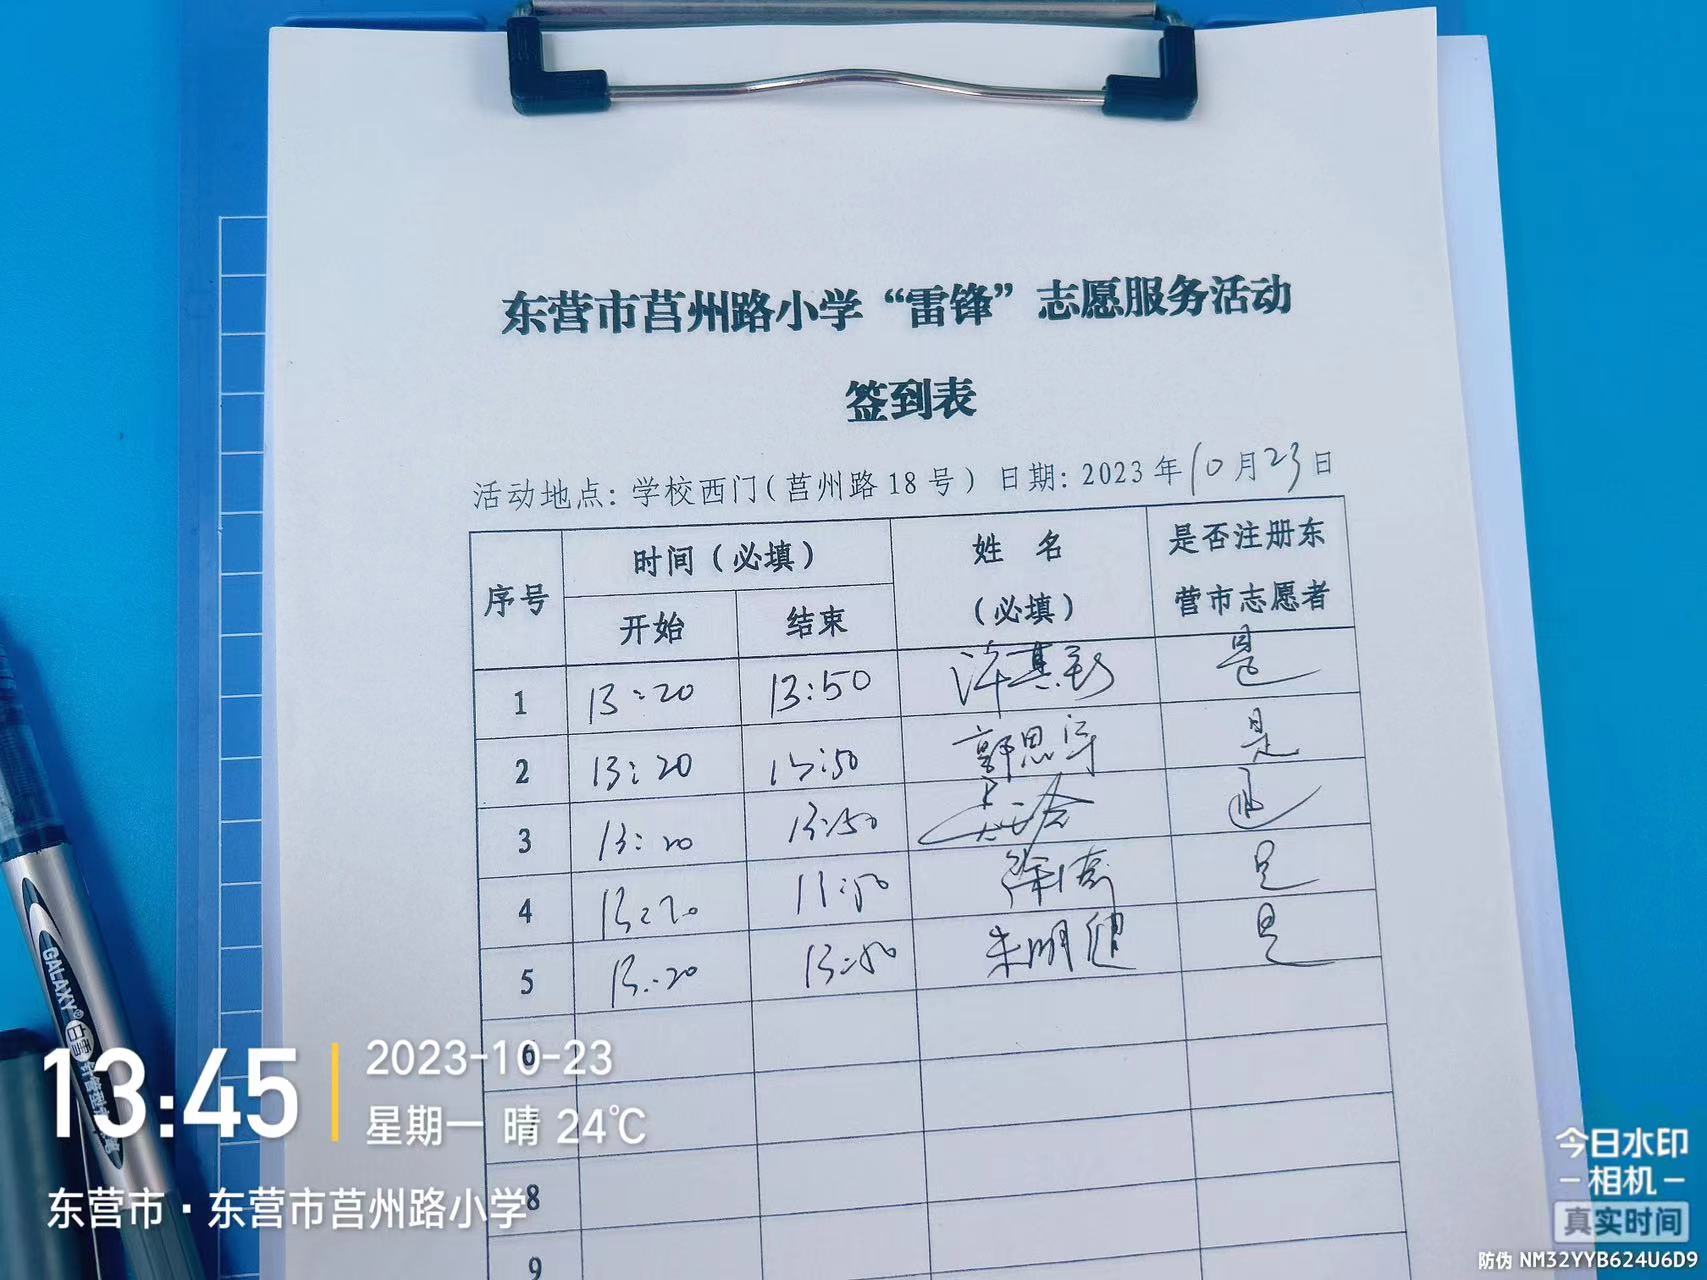 东营市莒州路小学“雷锋”志愿服务活动
签到表
活动地点：学校西门（莒州路18号） 日期：2023年10月23日
序号 时间（必填） 姓 名（必填） 是否注册东营市志愿者
开始 结束
1 13:20 13:50 是
2 13:20 13:50 郭思 是
3 13:20 13:50 是
4 13:20 13:50 徐倩 是
5 13:20 13:50 朱明健 是
6
8
9
13:45
2023-10-23
星期一 晴 24℃
东营市·东营市莒州路小学
GALAXY
白雪
今日水印
相机
真实时间
防伪 NM32YYB624U6D9